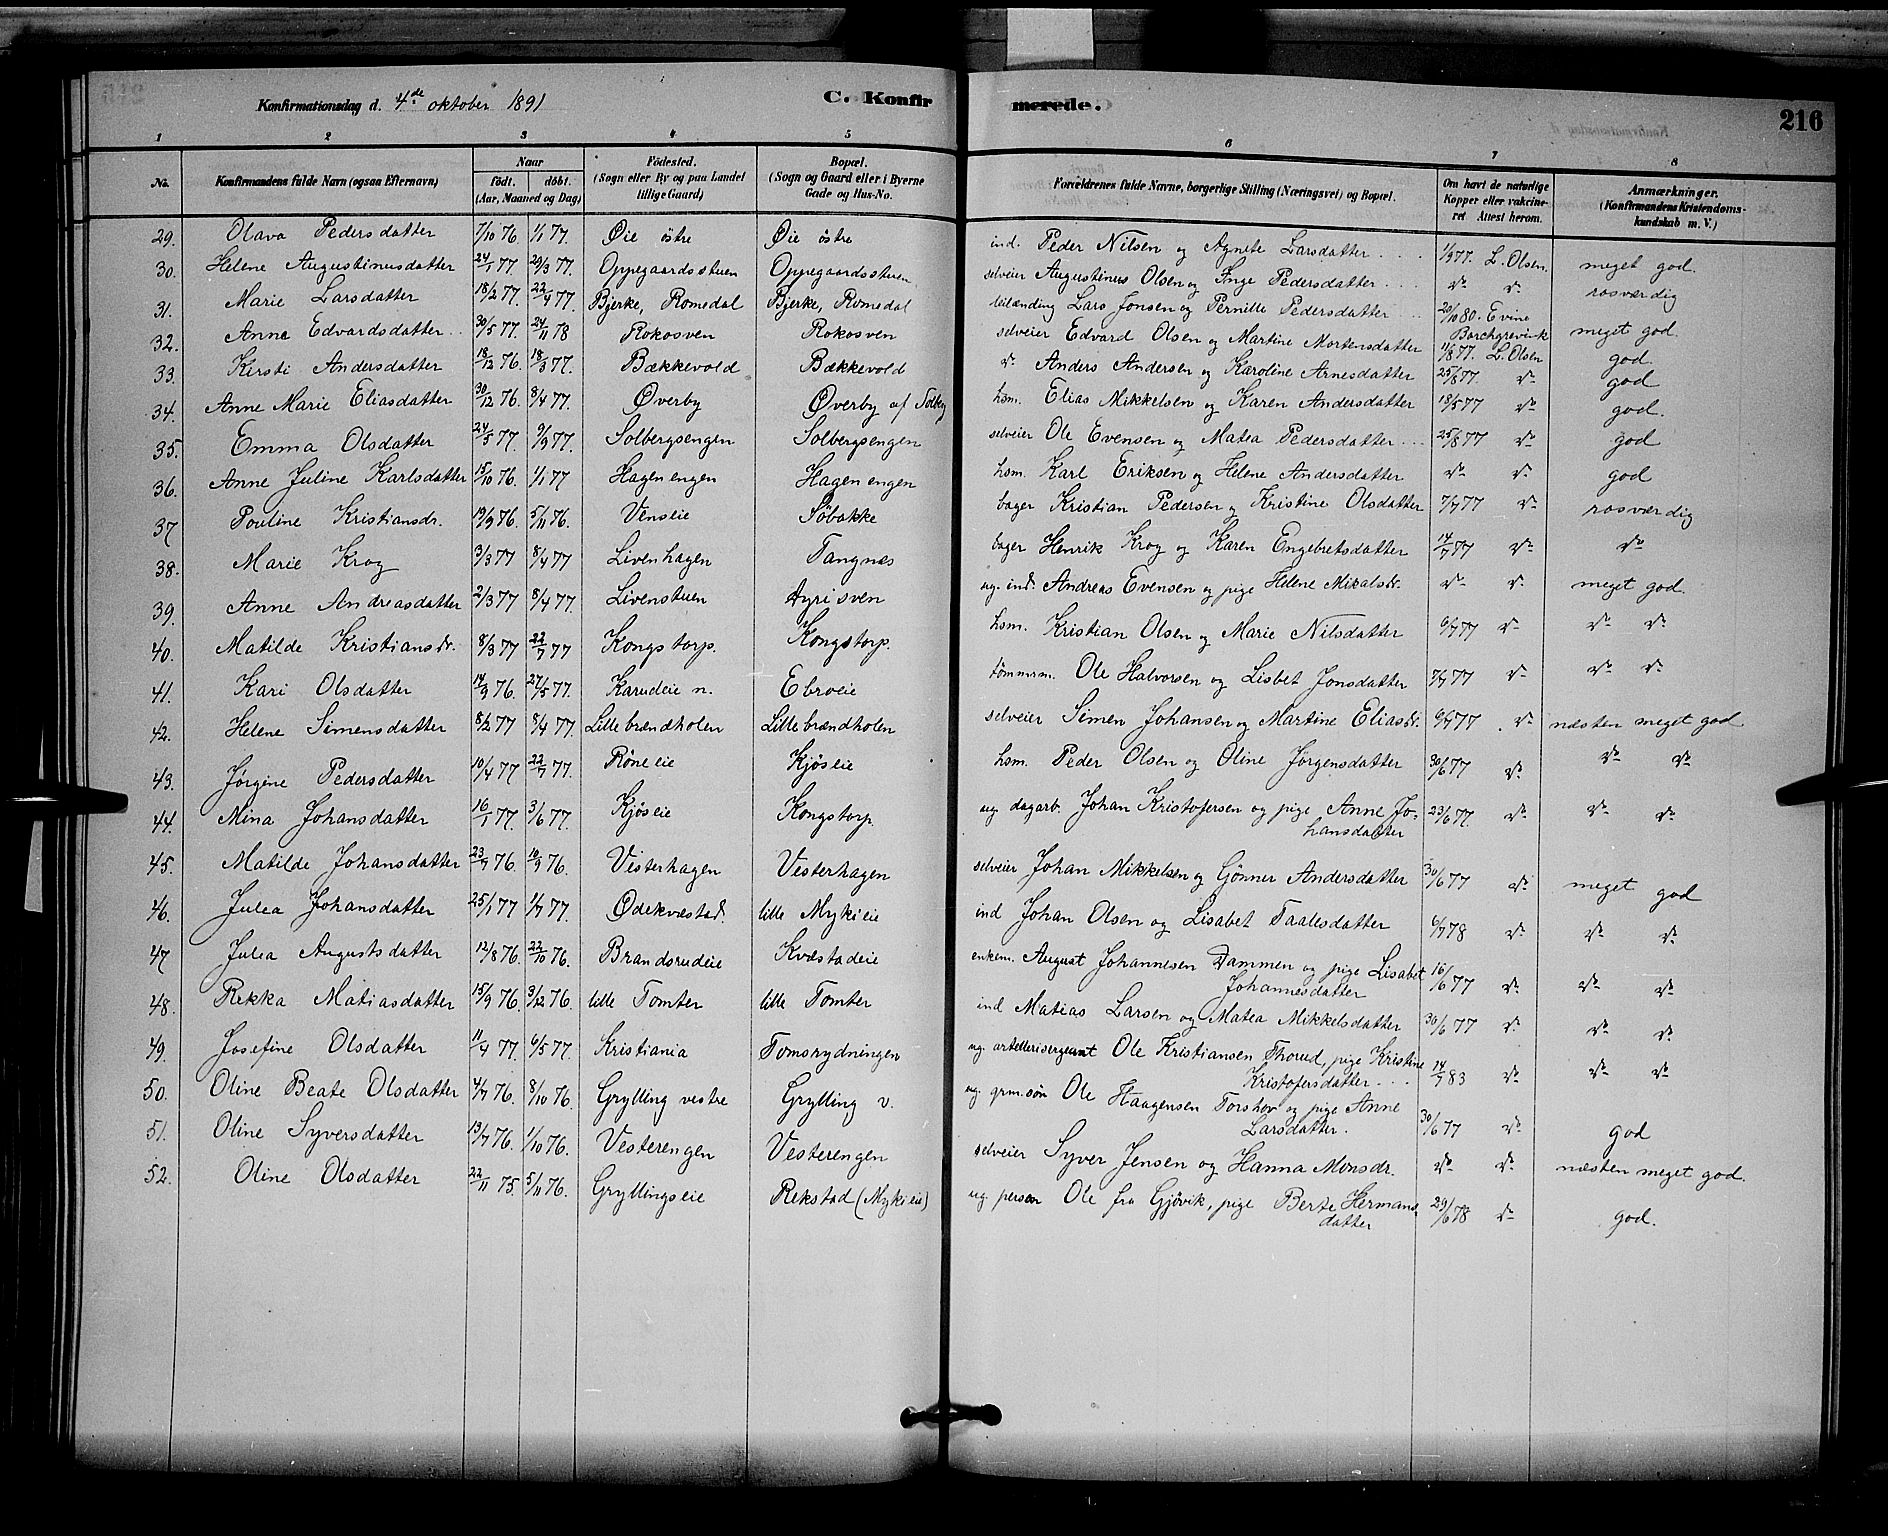 Konfirmationsdag d. 4de oktober 1891 C. Konfirmerede. 216
1 2 3 4 5 6 7 8
No. Konfirmandens fulde Navn (ogsaa Efternavn) Naar födt. döbt. (Aar, Maaned og Dag) Födested. (Sogn eller By og paa Landet tillige Gaard) Bopæl. (Sogn og Gaard eller i Byerne Gade og Hus-No. Forældrenes fulde Navne, borgerlige Stilling (Næringsvei) og Bopæl. Om havt de naturlige Kopper eller vakcineret. Attest herom. Anmærkninger. (Konfirmandens Kristendomskundskab m. V.)
29. Olava Pedersdatter 7/10 76. 1/1 77. Øie östre Øie östre ind. Peder Nilsen og Agnete Larsdatter 1/9 77. L. Olsen. meget god.
30. Helene Augustinusdatter 24/1 77. 29/3 77. Oppegaardsstuen Oppegaardsstuen selveier Augustinus Olsen og Inge Pedersdatter do do rosværdig
31. Marie Larsdatter 18/2 77. 22/4 77. Bjerke, Romedal Bjerke, Romedal leilænding Lars Jonsen og Pernille Pedersdatter 20/10 80. Evine Borchgrevink meget god.
32. Anna Edvardsdatter 30/5 77. 24/11 78 Rokosven Rokosven selveier Edvard Olsen og Martine Mortensdatter 11/8 77. L. Olsen god.
33. Kirsti Andersdatter 18/12 76. 18/3 77. Bækkevold Bækkevold do Anders Andersen og Karoline Arnesdatter 25/8 77. do god
34. Anne Marie Eliasdatter 30/12 76. 8/4 77. Øverby Øverby af Solbg hsm. Elias Mikkelsen og Karen Andersdatter 18/5 77 do god.
35. Emma Olsdatter 24/5 77. 9/9 77. Solbergsengen Solbergsengen selveier Ole Evensen og Matea Pedersdatter 25/8 77 do god
36. Anne Juline Karlsdatter 15/10 76. 1/1 77 Hagenengen Hagenengen hsm. Karl Eriksen og Helene Andersdatter do do god
37 Pouline Kristiansdr. 19/9 76. 5/11 76. Venseie Søbakke bager Kristian Pedersen og Kristine Olsdatter 7/7 77 do rosværdig
38. Marie Krog 3/3 77 8/4 77 Livenhagen Tangnæs bager Henrik Krog og Karen Engebretsdatter 14/7 77 do do
39. Anne Andreasdatter 2/3 77 8/4 77. Livenstuen Hyrisven ug. ind. Andreas Evensen og pige Helene Mikalsdr. do do meget god.
40. Matilde Kristiansdr. 8/3 77 22/7 77 Kongstorp. Kongstorp. hsm. Kristian Olsen og Marie Nilsdatter 6/7 77 do do do
41. Kari Olsdatter 14/9 76. 27/5 77. Karudeie n. Ebroeie tömmerm. Ole Halvorsen og Lisbet Jonsdatter 7/7 77 do do do
42. Helene Simensdatter 8/2 77 8/4 77. Lillebrændholen Lillebrændholen selveier Simen Johansen og Martine Eliasdr. 6/7 77 do næsten meget god.
43. Jørgine Pedersdatter 10/4 77 22/7 77. Røneeie Kjöseie hsm. Peder Olsen og Oline Jörgensdatter 30/6 77 do do do
44. Mina Johansdatter 16/1 77. 3/6 77. Kjöseie Kongstorp ug dagarb. Johan Kristofersen og pige Anne Johansdatter 23/6 77. do do do
45. Matilde Johansdatter 23/7 76. 10/9 76. Vesterhagen Vesterhagen selveier Johan Mikkelsen og Gönner Andersdatter 30/6 77 do meget god
46. Julea Johansdatter 25/1 77 1/7 77. Ödekvæstad. lille Mykieie ind Johan Olsen og Lisabet Taallsdatter 6/7 78 do do do
47 Julea Augustsdatter 12/8 76. 22/10 76. Brandsrudeie Kvæstadeie enkem. August Johannesen Dammen og pige Lisabet Johannesdatter 16/6 77 do do do
48. Rikka Matiasdatter 15/9 76. 3/12 76. lille Tomter lille Tomter ind Matias Larsen og Matea Mikkelsdatter 30/6 77 do do do
49. Josefine Olsdatter 11/4 77. 6/5 77. Kristiania Tomsrydningen ug. artillerisergeant Ole Kristiansen Thorud, pige Kristine Kristofersdatter 14/7 83 do do do
50. Oline Beate Olsdatter 4/7 76. 8/10 76. Grylling vestre Grylling v. ug. grm.sön Ole Haagensen Torshov og pige Anne Larsdatter. 30/6 77 do god
51. Oline Syversdatter 13/7 76. 1/10 76. Vesterengen Vesterengen selveier Syver Jensen og Hanna Monsdr. do do næsten meget god.
52. Oline Olsdatter 22/11 75. 5/11 76. Gryllingseie Rekstad (Mykieie) ug. person Ole fra Gjövik, pige Berte Hermansdatter 29/6 78 do god.